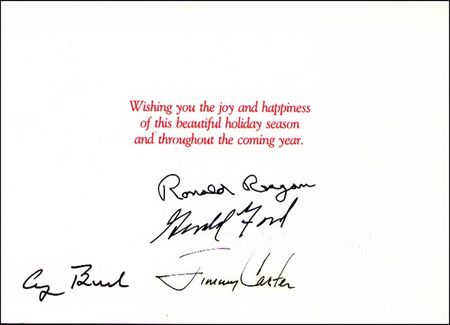 Wishing you the joy and happiness
of this beautiful holiday season
and throughout the coming year.
Ronald Reagan
Gerald Ford
Jimmy Carter